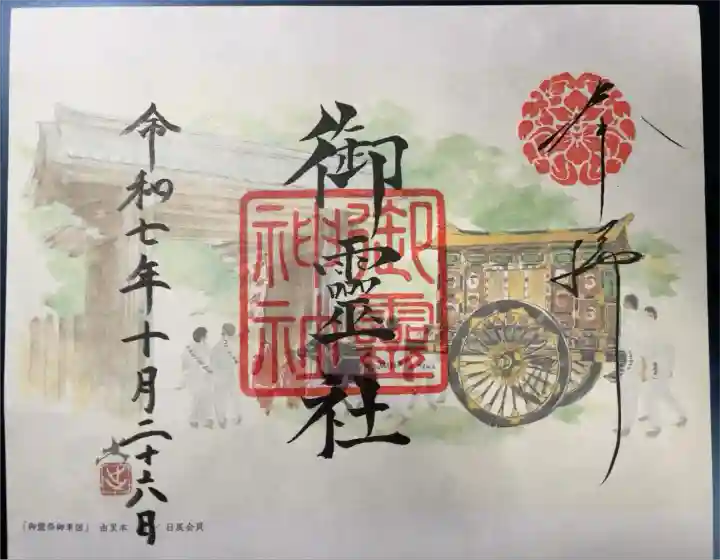 奉拝
御靈社
御靈神社
令和七年十月二十六日
「御靈祭御車図」 由里本 日展会員